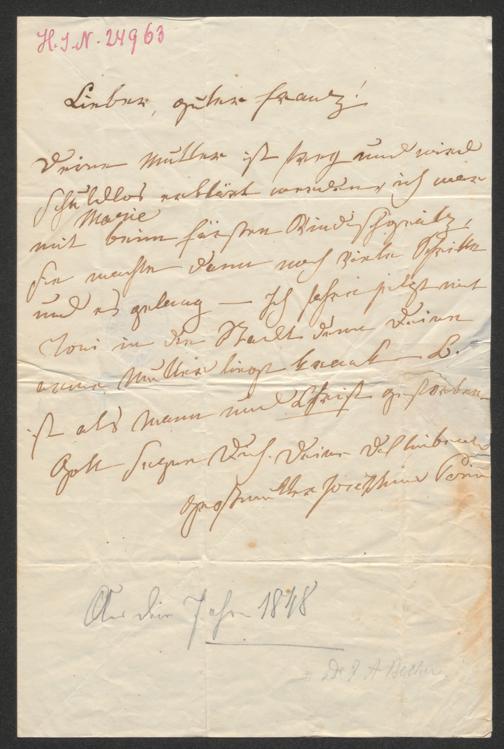 H.I.N. 24963
Lieber, guter Franz!
Deine Mutter ist frey und wird
Schuldlos erklärt werden, ich war
Marie
mit beim Fürsten Windischgrätz,
sie machte dann noch viele Schritte
und es gelang — Ich fahre jetzt mit
Toni in die Stadt denn Deine
arme Mutter liegt krank. B.
ist als Mann und Christ gestorben
Gott segne Dich. Deine Dich liebende
Großmutter Josephine
Aus dem Jahre 1848
Dr J A Becher